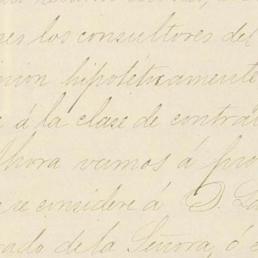 res los consultores del
nion hipotéticamente
á la clase de contra
Ahora vamos á pro
se considere á D. 
rado de la Señora, ó